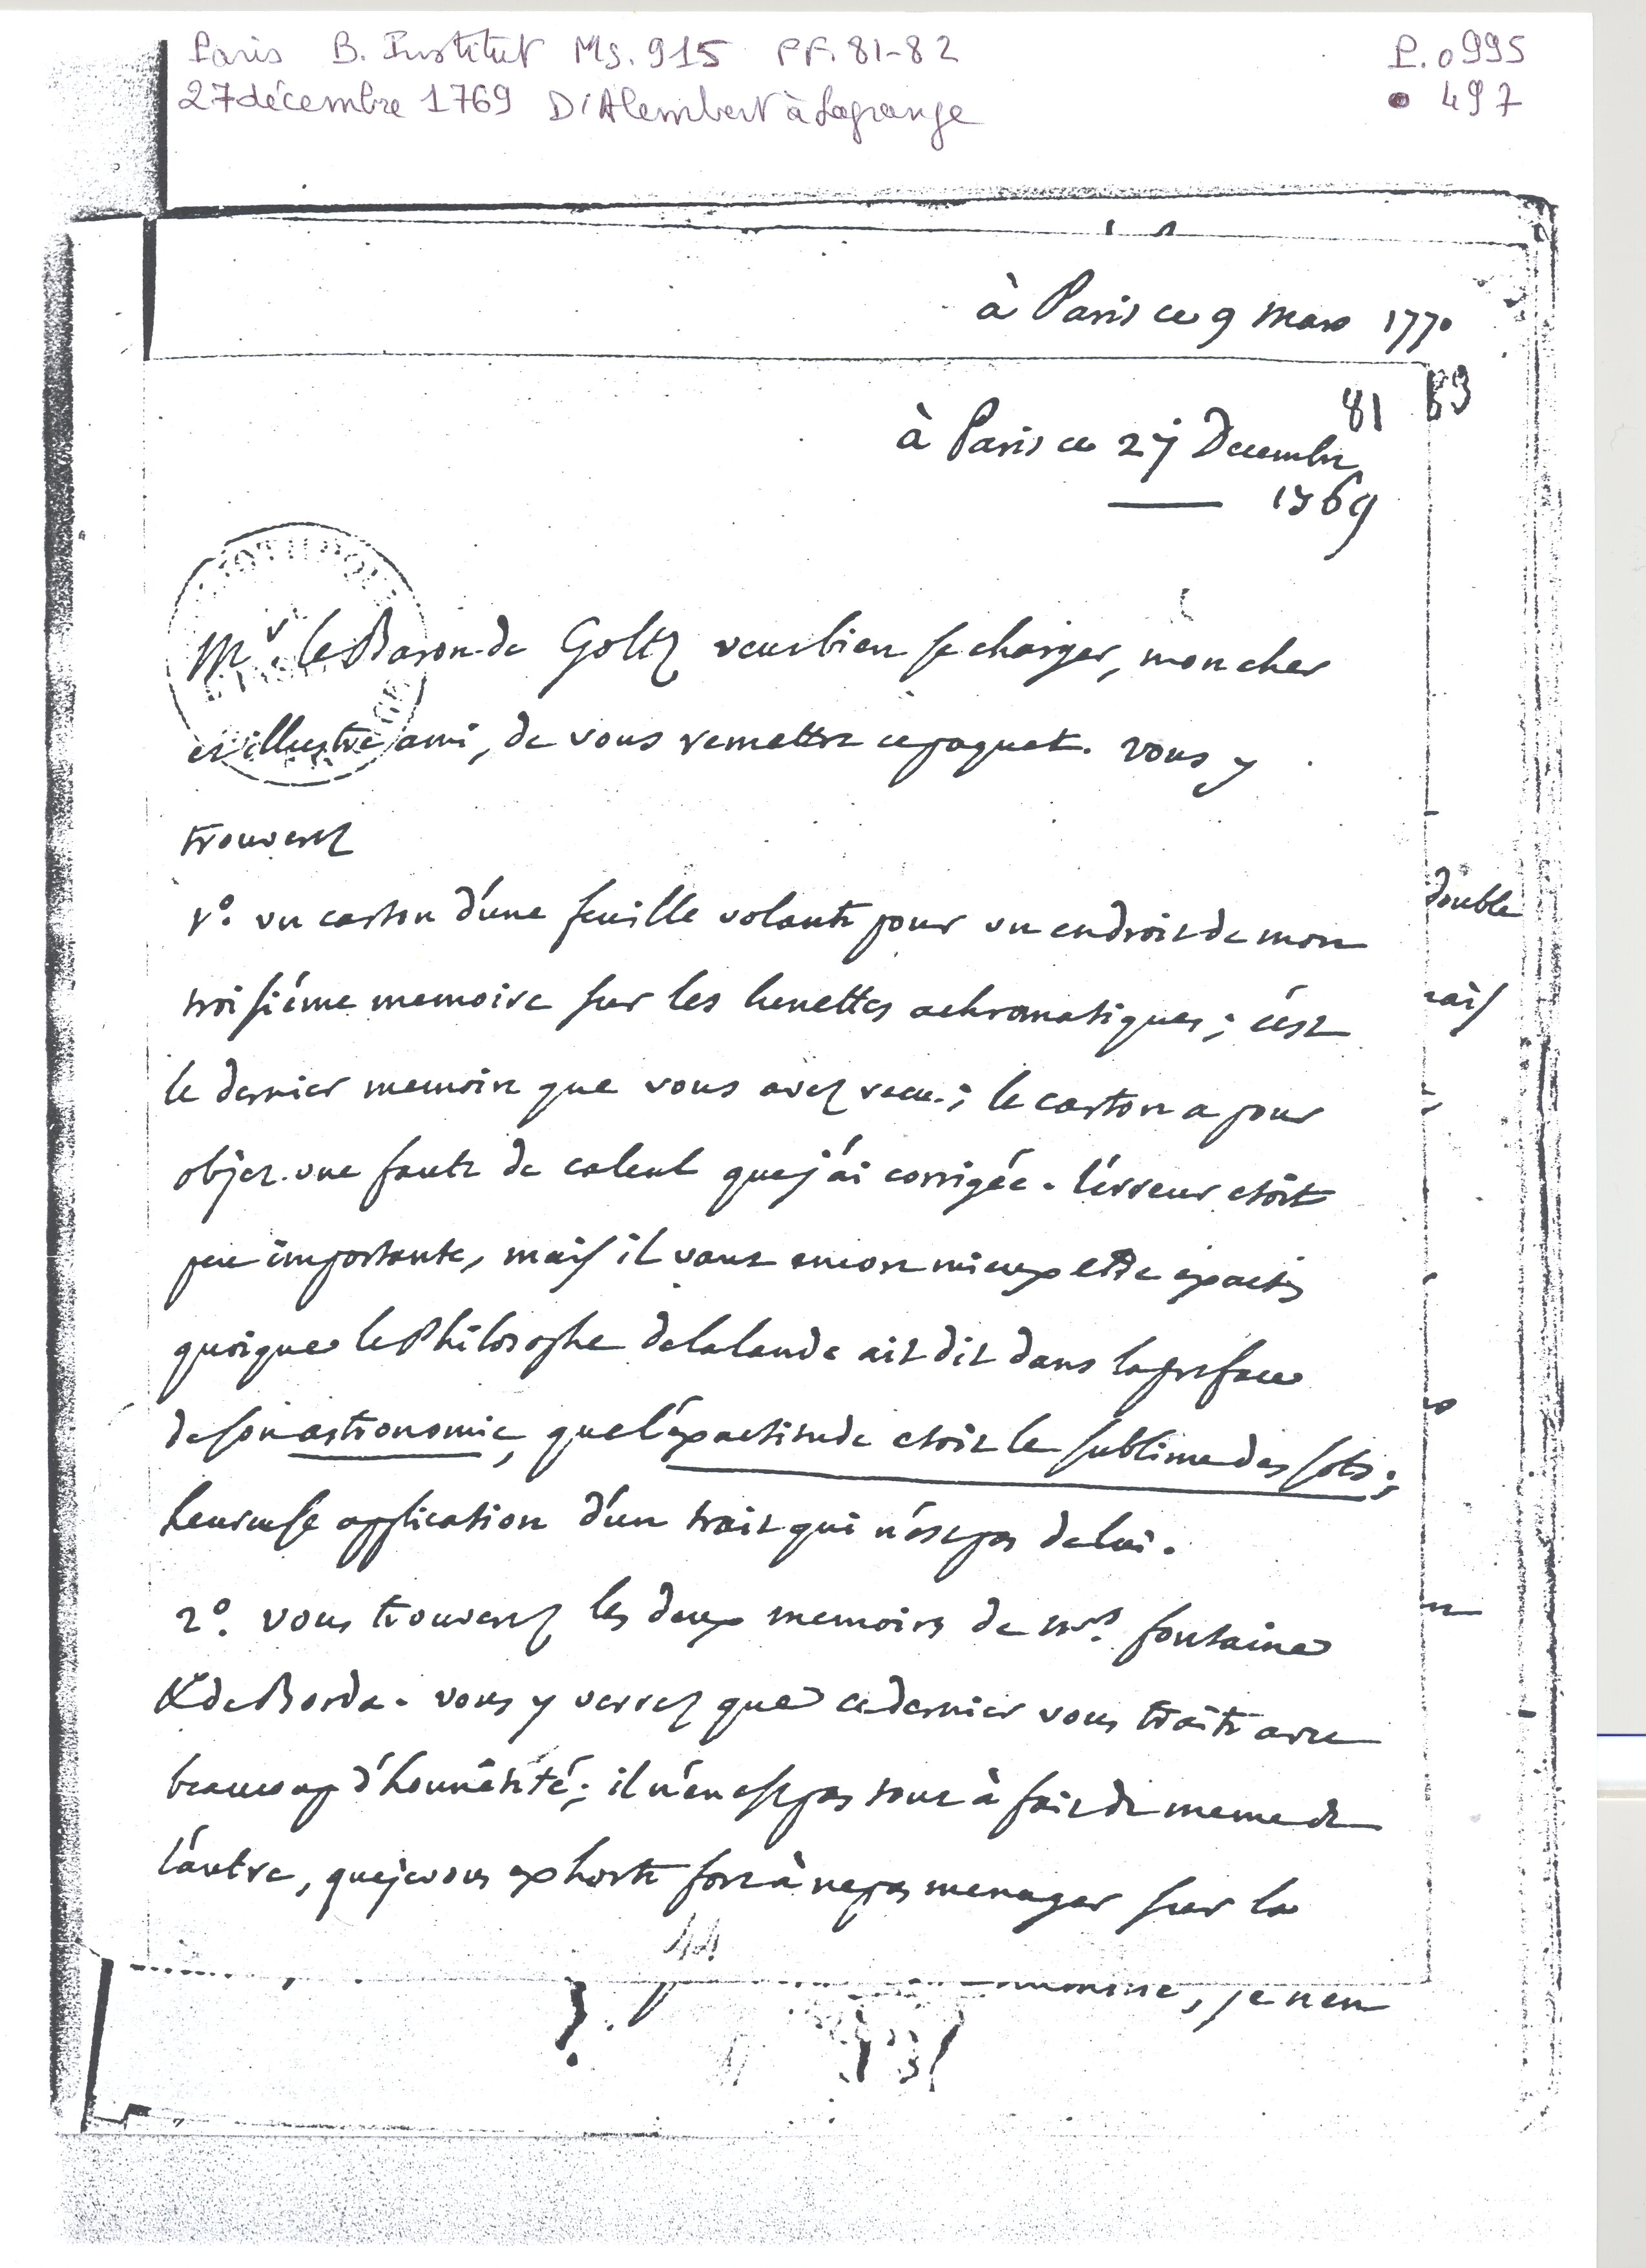 Paris B. Institut Ms. 915 FF. 81-82
P. 0995
27 décembre 1769 D'Alembert à Lagrange
497
à Paris ce 9 mars 1770
81
83
à Paris ce 27 Decembre
1769
Mr. le Baron de Goltz veut bien se charger, mon cher
et illustre ami, de vous remettre ce paquet. vous y
trouverez
1°. un carton d'une feuille volante pour un endroit de mon
double
troisiéme memoire sur les lunettes achromatiques; c'est
le dernier memoire que vous avez recu; le carton a pour
objet une faute de calcul que j'ai corrigée. l'erreur etoit
peu importante, mais il vaut encore mieux etre exact,
quoique le Philosophe de la lande ait dit dans la preface
de son astronomie, que l'exactitude etoit le sublime des sots;
heureuse application d'un trait qui n'est pas de lui.
2°. vous trouverez les deux memoires de mrs. fontaine
& de Borda. vous y verrez que ce dernier vous traite avec
beaucoup d'honnêteté; il n'en est pas tout à fait de meme de
l'autre, que je vous exhorte fort à ne pas menager sur la
44
je n'en